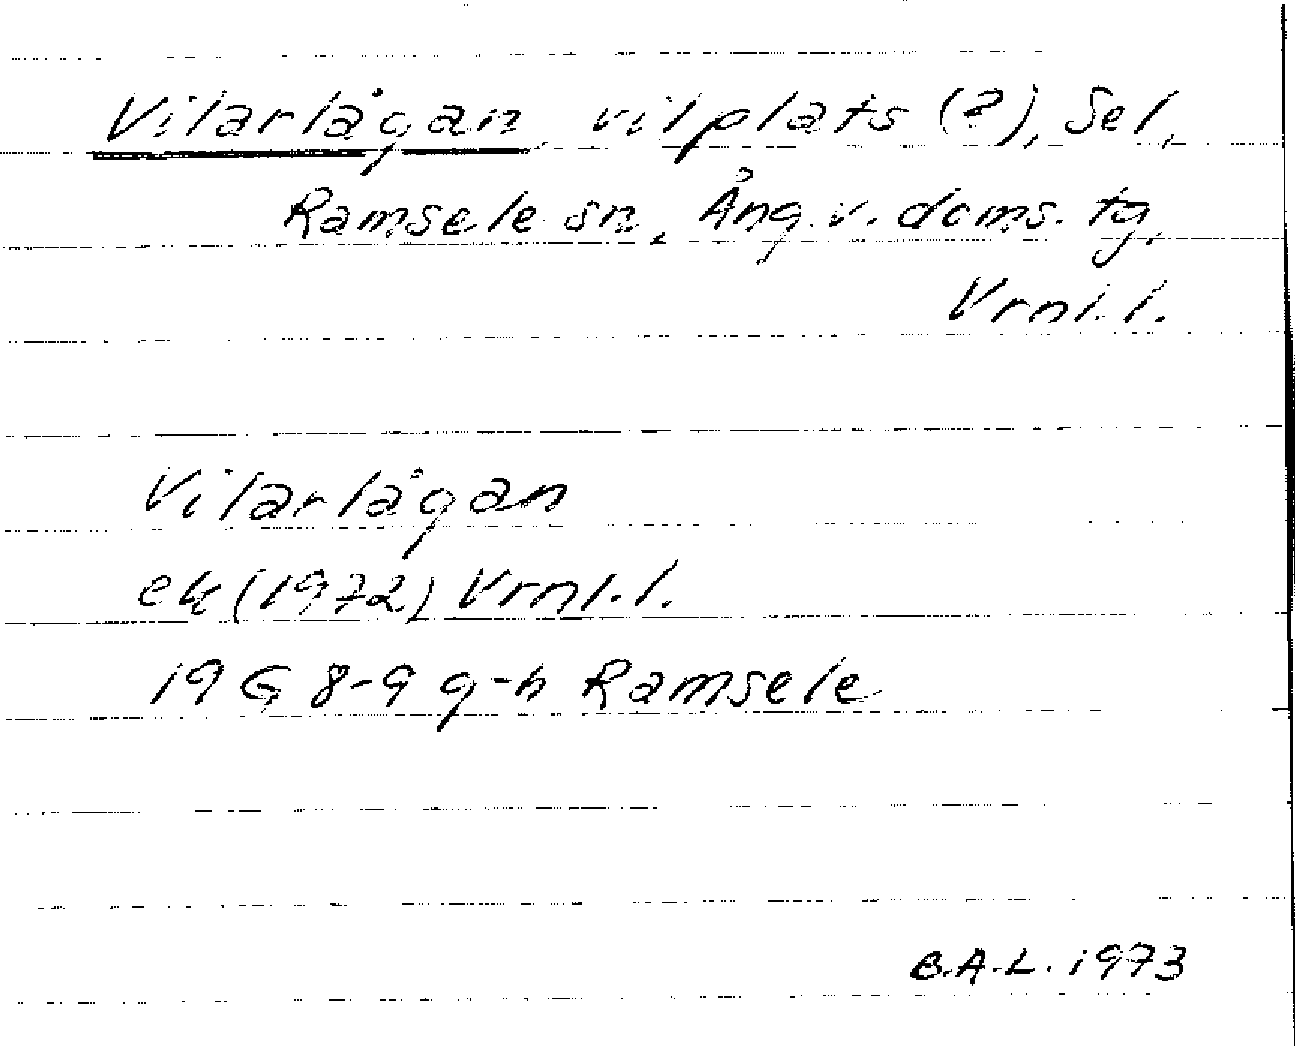 Vilarlågan, vilplats (?), Sel,
Ramsele sn, Ång. v. doms. tg,
Vrnl. l.
Vilarlågan
ek (1972) Vrnl. l.
19 G 8-9 g-h Ramsele
B.A.L. 1973